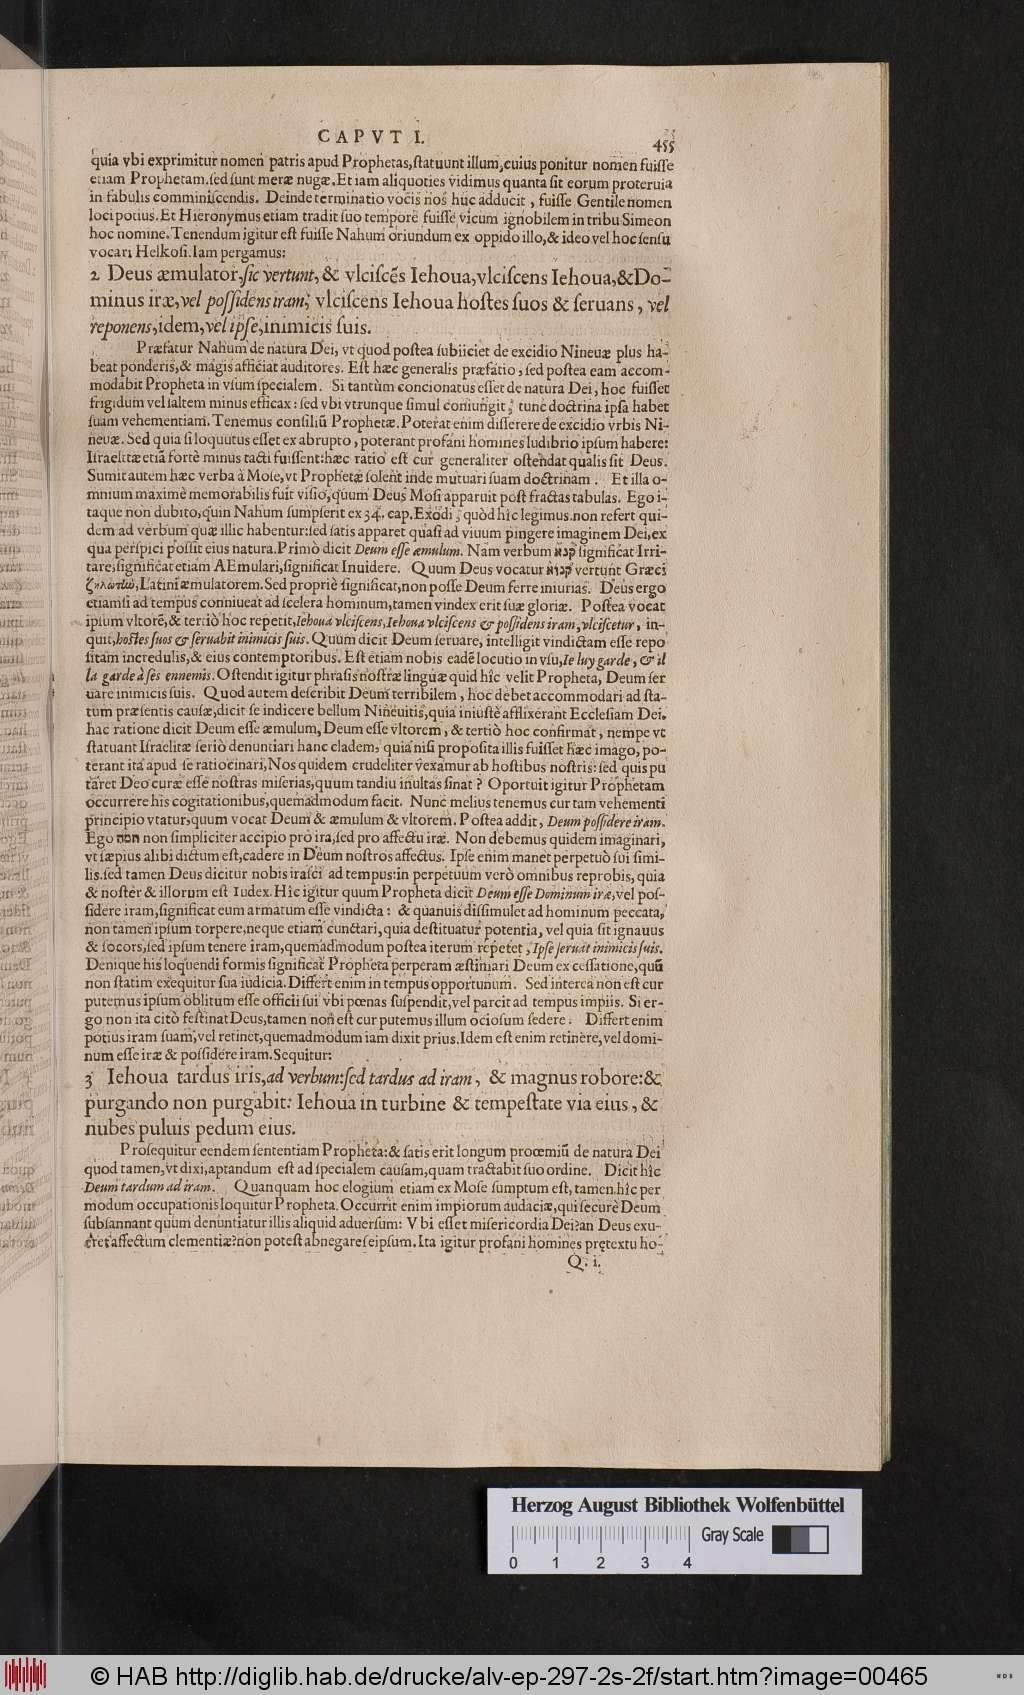 CAPVT I.
455
quia vbi exprimitur nomen patris apud Prophetas, ſtatuunt illum, cuius ponitur nomen fuiſſe
etiam Prophetam. ſed ſunt meræ nugæ. Et iam aliquoties vidimus quanta ſit eorum proteruia
in fabulis comminiſcendis. Deinde terminatio vocis nos huc adducit, fuiſſe Gentile nomen
loci potius. Et Hieronymus etiam tradit ſuo tempore fuiſſe vicum ignobilem in tribu Simeon
hoc nomine. Tenendum igitur eſt fuiſſe Nahum oriundum ex oppido illo, & ideo vel hoc ſenſu
vocari Helkoſi. Iam pergamus:
2 Deus æmulator, ſic vertunt, & vlciſcẽs Iehoua, vlciſcens Iehoua, & Do-
minus iræ, vel poſſidens iram; vlciſcens Iehoua hoſtes ſuos & ſeruans, vel
reponens, idem, vel ipſe, inimicis ſuis.
Præfatur Nahum de natura Dei, vt quod poſtea ſubiiciet de excidio Nineuæ plus ha-
beat ponderis, & magis afficiat auditores. Eſt hæc generalis præfatio, ſed poſtea eam accom-
modabit Propheta in vſum ſpecialem. Si tantùm concionatus eſſet de natura Dei, hoc fuiſſet
frigidum vel ſaltem minus efficax: ſed vbi vtrunque ſimul coniungit, tunc doctrina ipſa habet
ſuam vehementiam. Tenemus conſiliũ Prophetæ. Poterat enim diſſerere de excidio vrbis Ni-
neuæ. Sed quia ſi loquutus eſſet ex abrupto, poterant profani homines ludibrio ipſum habere:
Iſraelitæ etiã fortè minus tacti fuiſſent: hæc ratio eſt cur generaliter oſtendat qualis ſit Deus.
Sumit autem hæc verba à Moſe, vt Prophetæ ſolent inde mutuari ſuam doctrinam. Et illa o-
mnium maximè memorabilis fuit viſio, quum Deus Moſi apparuit poſt fractas tabulas. Ego i-
taque non dubito, quin Nahum ſumpſerit ex 34. cap. Exodi, quòd hîc legimus. non refert qui-
dem ad verbum quæ illic habentur: ſed ſatis apparet quaſi ad viuum pingere imaginem Dei, ex
qua perſpici poſſit eius natura. Primò dicit Deum eſſe æmulum. Nam verbum קנא ſignificat Irri-
tare, ſignificat etiam AEmulari, ſignificat Inuidere. Quum Deus vocatur קנוא vertunt Græci
ζηλωτὼ, Latini æmulatorem. Sed propriè ſignificat, non poſſe Deum ferre iniurias. Deus ergo
etiamſi ad tempus conniueat ad ſcelera hominum, tamen vindex erit ſuæ gloriæ. Poſtea vocat
ipſum vltorẽ, & tertiò hoc repetit, Iehoua vlciſcens, Iehoua vlciſcens & poſſidens iram, vlciſcetur, in-
quit, hoſtes ſuos & ſeruabit inimicis ſuis. Quum dicit Deum ſeruare, intelligit vindictam eſſe repo
ſitam incredulis, & eius contemptoribus. Eſt etiam nobis eadẽ locutio in vſu, Ie luy garde, & il
la garde à ſes ennemis. Oſtendit igitur phraſis noſtræ linguæ quid hîc velit Propheta, Deum ſer
uare inimicis ſuis. Quod autem deſcribit Deum terribilem, hoc debet accommodari ad ſta-
tum præſentis cauſæ, dicit ſe indicere bellum Nineuitis, quia iniuſtè afflixerant Eccleſiam Dei.
hac ratione dicit Deum eſſe æmulum, Deum eſſe vltorem, & tertiò hoc confirmat, nempe vt
ſtatuant Iſraelitæ ſeriò denuntiari hanc cladem, quia niſi propoſita illis fuiſſet hæc imago, po-
terant ita apud ſe ratiocinari, Nos quidem crudeliter vexamur ab hoſtibus noſtris: ſed quis pu
taret Deo curæ eſſe noſtras miſerias, quum tandiu inultas ſinat? Oportuit igitur Prophetam
occurrere his cogitationibus, quemadmodum facit. Nunc melius tenemus cur tam vehementi
principio vtatur, quum vocat Deum & æmulum & vltorem. Poſtea addit, Deum poſſidere iram.
Ego חמה non ſimpliciter accipio pro ira, ſed pro affectu iræ. Non debemus quidem imaginari,
vt ſæpius alibi dictum eſt, cadere in Deum noſtros affectus. Ipſe enim manet perpetuò ſui ſimi-
lis. ſed tamen Deus dicitur nobis iraſci ad tempus: in perpetuum verò omnibus reprobis, quia
& noſter & illorum eſt Iudex. Hîc igitur quum Propheta dicit Deum eſſe Dominum iræ, vel poſ-
ſidere iram, ſignificat eum armatum eſſe vindicta: & quanuis diſſimulet ad hominum peccata,
non tamen ipſum torpere, neque etiam cunctari, quia deſtituatur potentia, vel quia ſit ignauus
& ſocors, ſed ipſum tenere iram, quemadmodum poſtea iterum repetet, Ipſe ſeruat inimicis ſuis.
Denique his loquendi formis ſignificat Propheta perperam æſtimari Deum ex ceſſatione, quũ
non ſtatim exequitur ſua iudicia. Differt enim in tempus opportunum. Sed interea non eſt cur
putemus ipſum oblitum eſſe officii ſui vbi pœnas ſuſpendit, vel parcit ad tempus impiis. Si er-
go non ita citò feſtinat Deus, tamen non eſt cur putemus illum ocioſum ſedere. Differt enim
potius iram ſuam, vel retinet, quemadmodum iam dixit prius. Idem eſt enim retinere, vel domi-
num eſſe iræ & poſſidere iram. Sequitur:
3 Iehoua tardus iris, ad verbum: ſed tardus ad iram, & magnus robore: &
purgando non purgabit: Iehoua in turbine & tempeſtate via eius, &
nubes puluis pedum eius.
Proſequitur eendem ſententiam Propheta: & ſatis erit longum prooemiũ de natura Dei
quod tamen, vt dixi, aptandum eſt ad ſpecialem cauſam, quam tractabit ſuo ordine. Dicit hîc
Deum tardum ad iram. Quanquam hoc elogium etiam ex Moſe ſumptum eſt, tamen hîc per
modum occupationis loquitur Propheta. Occurrit enim impiorum audaciæ, qui ſecurè Deum
ſubſannant quum denuntiatur illis aliquid aduerſum: Vbi eſſet miſericordia Dei? an Deus exu-
eret affectum clementiæ? non poteſt abnegare ſeipſum. Ita igitur profani homines prętextu ho-
Q. i.
Herzog August Bibliothek Wolfenbüttel
Gray Scale
0 1 2 3 4
© HAB http://diglib.hab.de/drucke/alv-ep-297-2s-2f/start.htm?image=00465